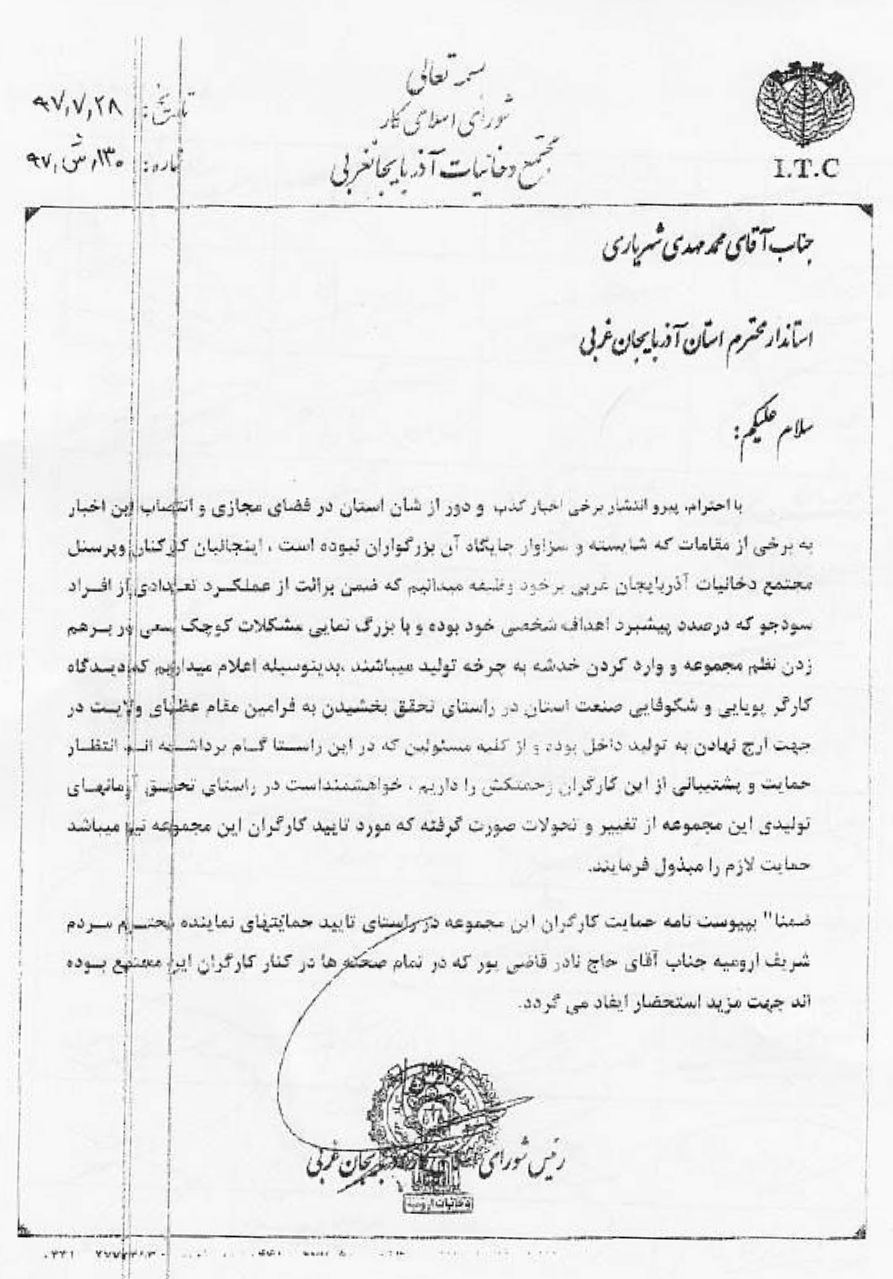 بسمه تعالی
شورای اسلامی کار
مجتمع دخانیات آذربایجانغربی
تاریخ: ۹۷٫۷٫۲۸
شماره: ۱۳۰٫ش٫۹۷
I.T.C
جناب آقای محمد مهدی شهریاری
استاندار محترم استان آذربایجان غربی
سلام علیکم:
با احترام، پیرو انتشار برخی اخبار کذب و دور از شان استان در فضای مجازی و انتصاب این اخبار
به برخی از مقامات که شایسته و سزاوار جایگاه آن بزرگواران نبوده است ، اینجانبان کارکنان وپرسنل
مجتمع دخانیات آذربایجان غربی برخود وظیفه میدانیم که ضمن برائت از عملکرد تعدادی از افراد
سودجو که درصدد پیشبرد اهداف شخصی خود بوده و با بزرگ نمایی مشکلات کوچک سعی در برهم
زدن نظم مجموعه و وارد کردن خدشه به چرخه تولید میباشند ،بدینوسیله اعلام میداریم که دیدگاه
کارگر پویایی و شکوفایی صنعت استان در راستای تحقق بخشیدن به فرامین مقام عظمای ولایت در
جهت ارج نهادن به تولید داخل بوده و از کلیه مسئولین که در این راستا گام برداشته اند انتظار
حمایت و پشتیبانی از این کارگران زحمتکش را داریم ، خواهشمنداست در راستای تحقق آرمانهای
تولیدی این مجموعه از تغییر و تحولات صورت گرفته که مورد تایید کارگران این مجموعه نیز میباشد
حمایت لازم را مبذول فرمایند.
ضمنا" بپیوست نامه حمایت کارگران این مجموعه در راستای تایید حمایتهای نماینده محترم مردم
شریف ارومیه جناب آقای حاج نادر قاضی پور که در تمام صحنه ها در کنار کارگران این مجتمع بوده
اند جهت مزید استحضار ایفاد می گردد.
رئیس شورای آذربایجان غربی
دخانیات ارومیه